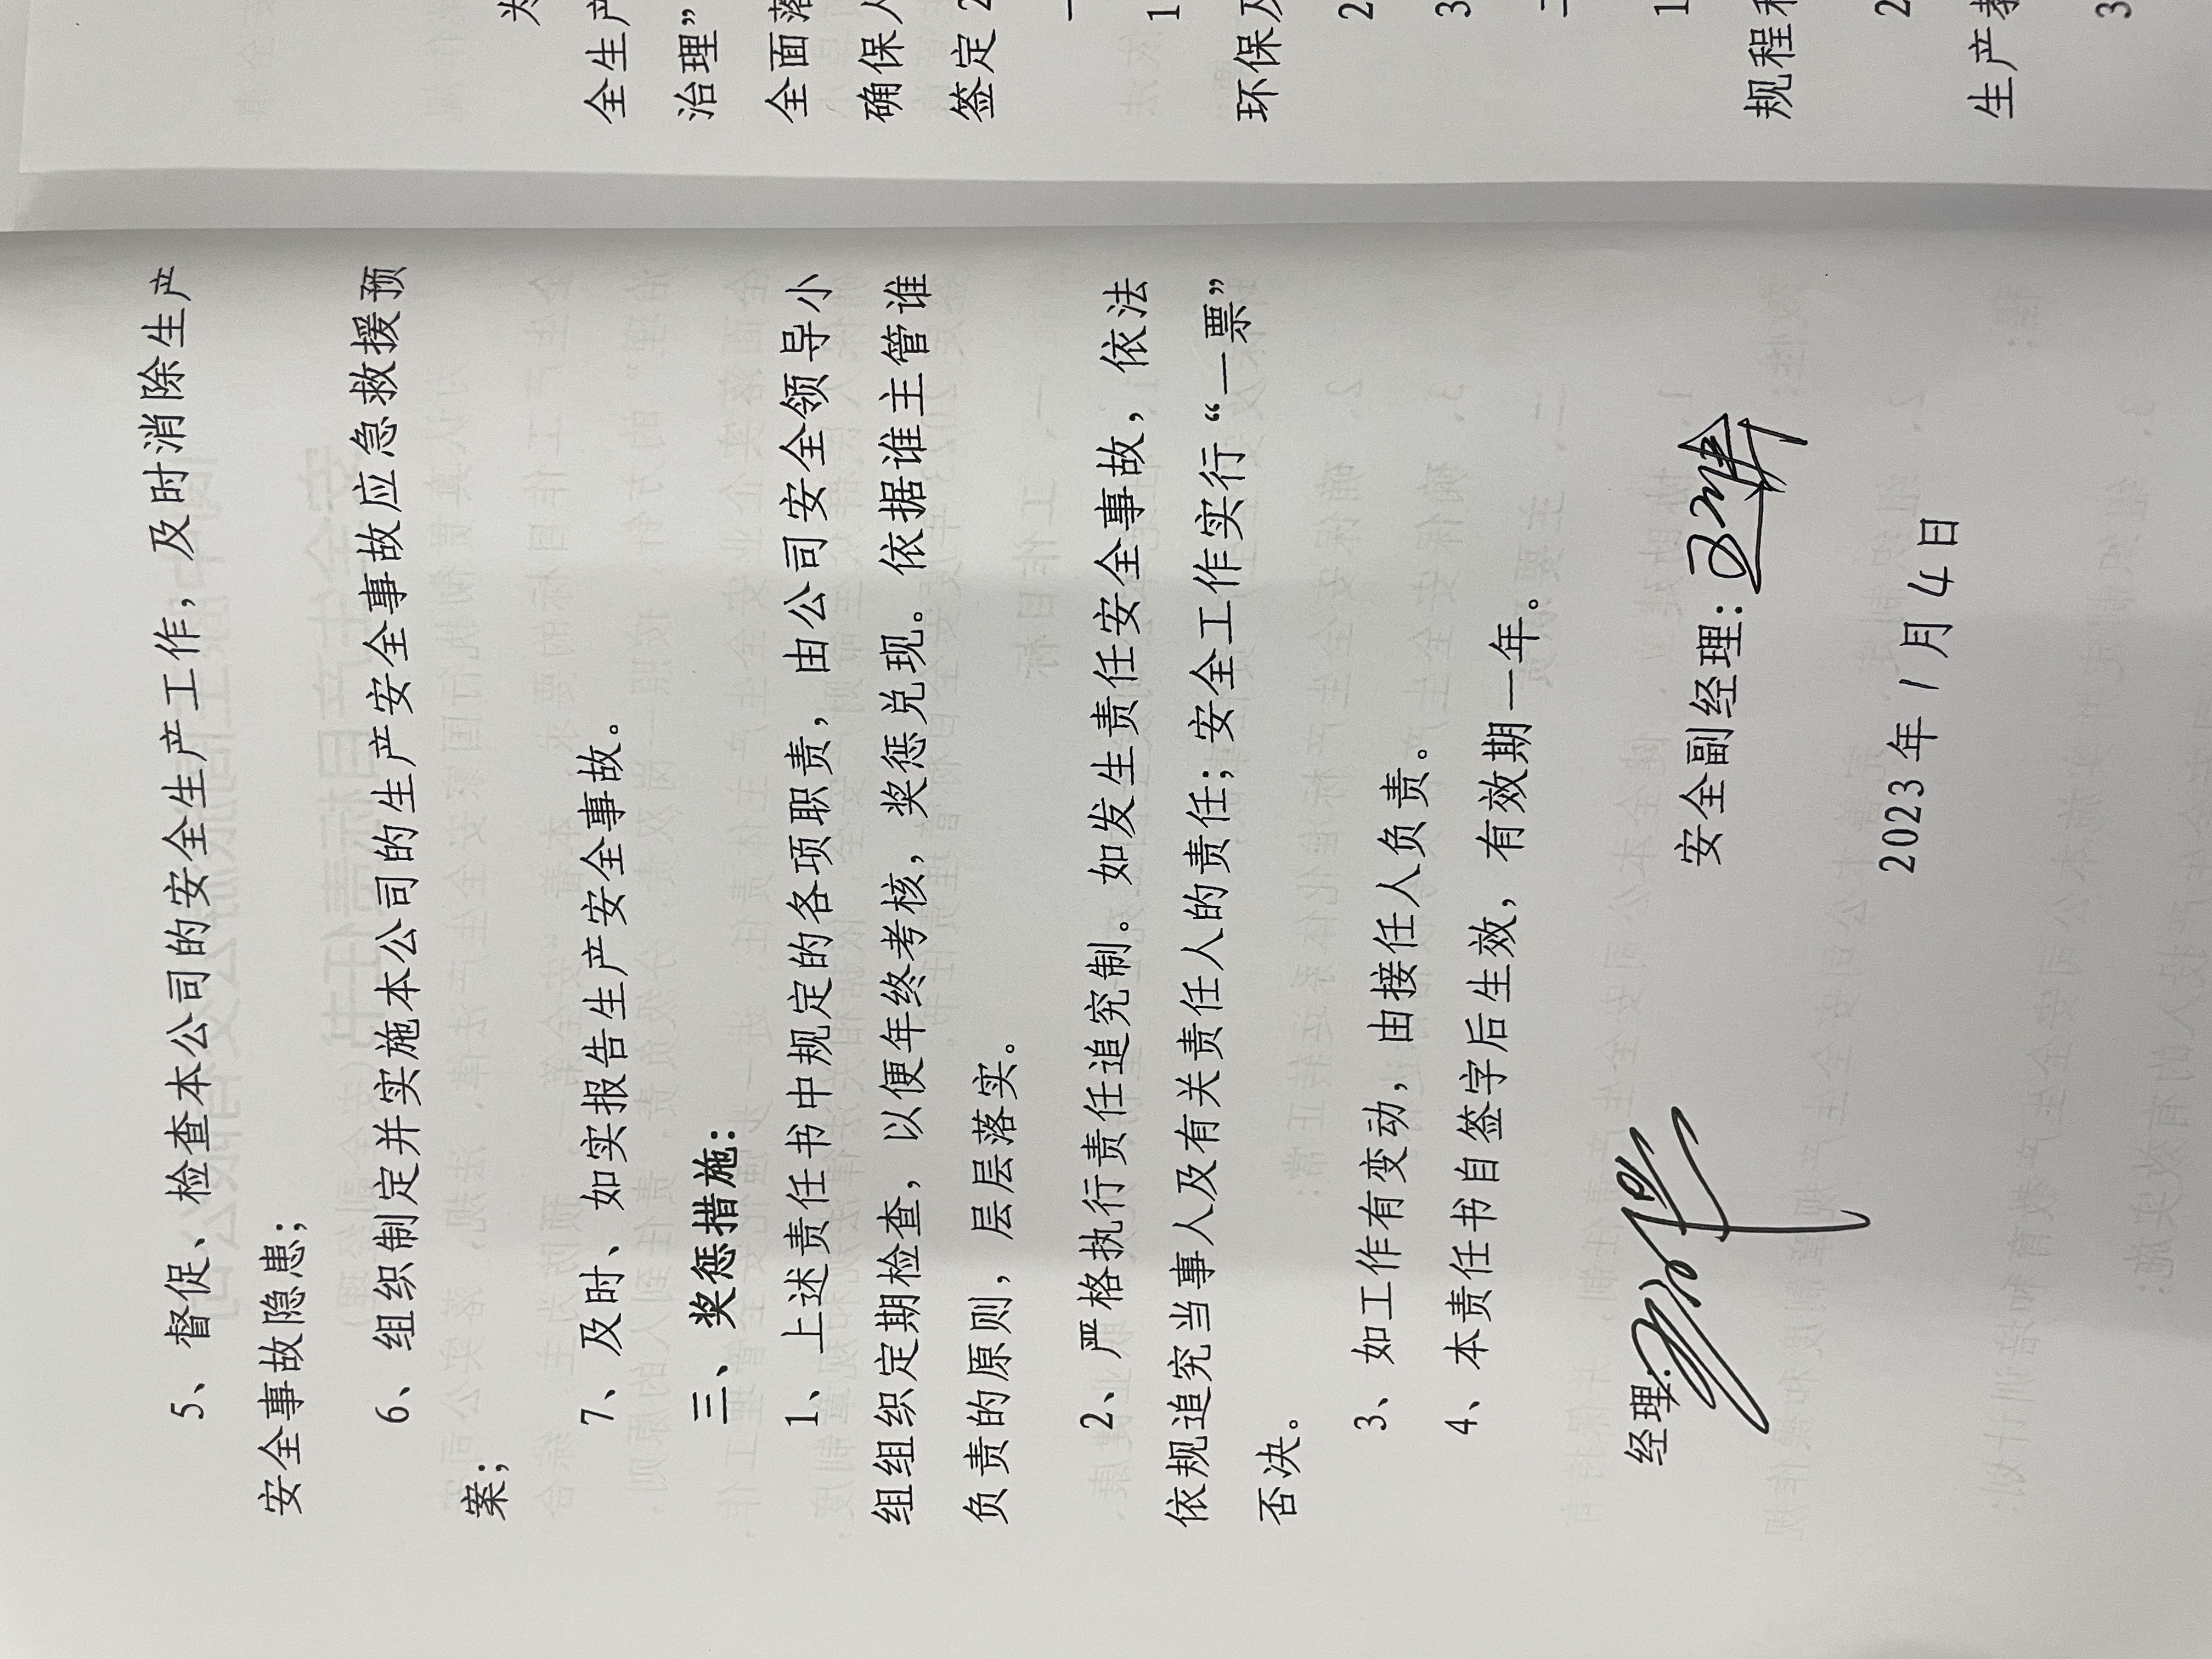 5、督促、检查本公司的安全生产工作，及时消除生产
安全事故隐患；
6、组织制定并实施本公司的生产安全事故应急救援预
案；
7、及时、如实报告生产安全事故。
三、奖惩措施：
1、上述责任书中规定的各项职责，由公司安全领导小
组组织定期检查，以便年终考核，奖惩兑现。依据谁主管谁
负责的原则，层层落实。
2、严格执行责任追究制。如发生责任安全事故，依法
依规追究当事人及有关责任人的责任；安全工作实行“一票”
否决。
3、如工作有变动，由接任人负责。
4、本责任书自签字后生效，有效期一年。
经理： 安全副经理：
2023年1月4日
全生产
治理”
全面落
确保人
签定2
一
1
环保及
2
3
二
1
规程和
2
生产教
3